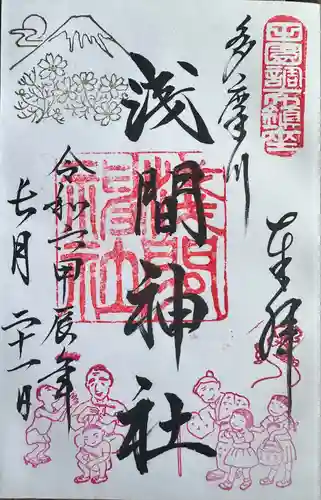 田園調布鎮座
多摩川
奉拝
浅間神社
浅間神社
令和六甲辰年
七月二十一日